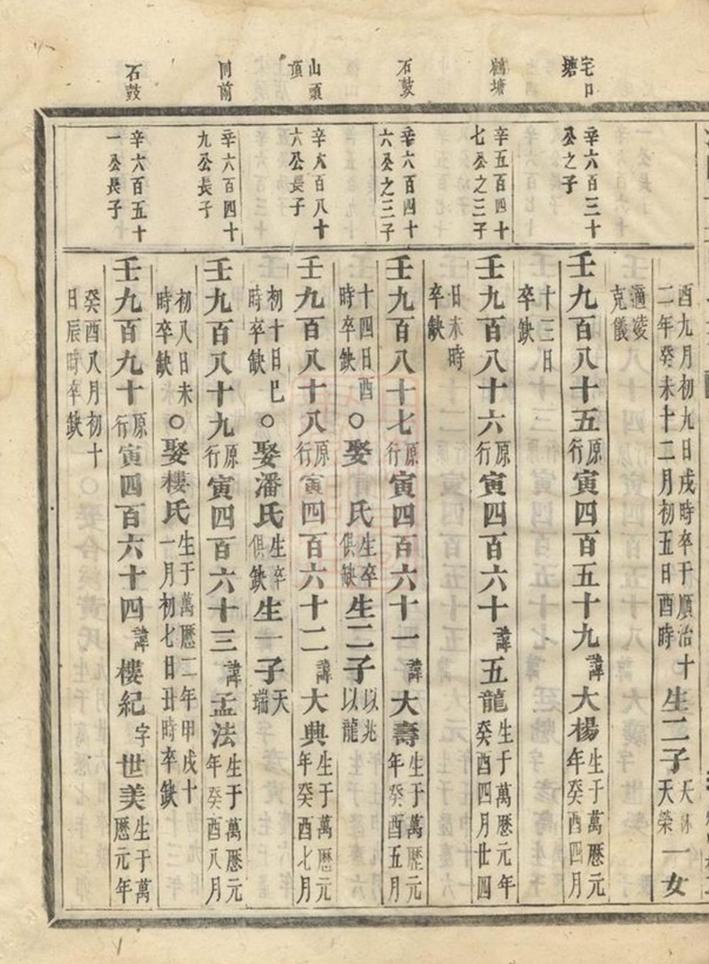 宅口塘
鶴塘
石鼓
山頭頂
同前
石鼓
辛六百三十
公之子
辛五百四十
七公之三子
辛六百四十
六公之三子
辛六百八十
六公長子
辛六百四十
九公長子
辛六百五十
一公長子
酉九月初九日戌時卒于順治十
二年癸未十二月初五日酉時
生二子
天榮
一女
適凌
克儀
壬九百八十五原行寅四百五十九諱大楊生于萬歷元年癸酉四月
十三日
卒缺
壬九百八十六原行寅四百六十諱五龍生于萬歷元年癸酉四月廿四
日未時
卒缺
壬九百八十七原行寅四百六十一諱大壽生于萬歷元年癸酉五月
十四日酉時卒缺○娶 氏生卒俱缺生二子以兆以龍
壬九百八十八原行寅四百六十二諱大典生于萬歷元年癸酉七月
初十日巳時卒缺○娶潘氏生卒俱缺生一子天瑞
壬九百八十九原行寅四百六十三諱孟法生于萬歷元年癸酉八月
初八日未時卒缺○娶樓氏生于萬歷二年甲戌十一月初七日丑時卒缺
壬九百九十原行寅四百六十四諱樓紀字世美生于萬歷元年
癸酉八月初十
日辰時卒缺